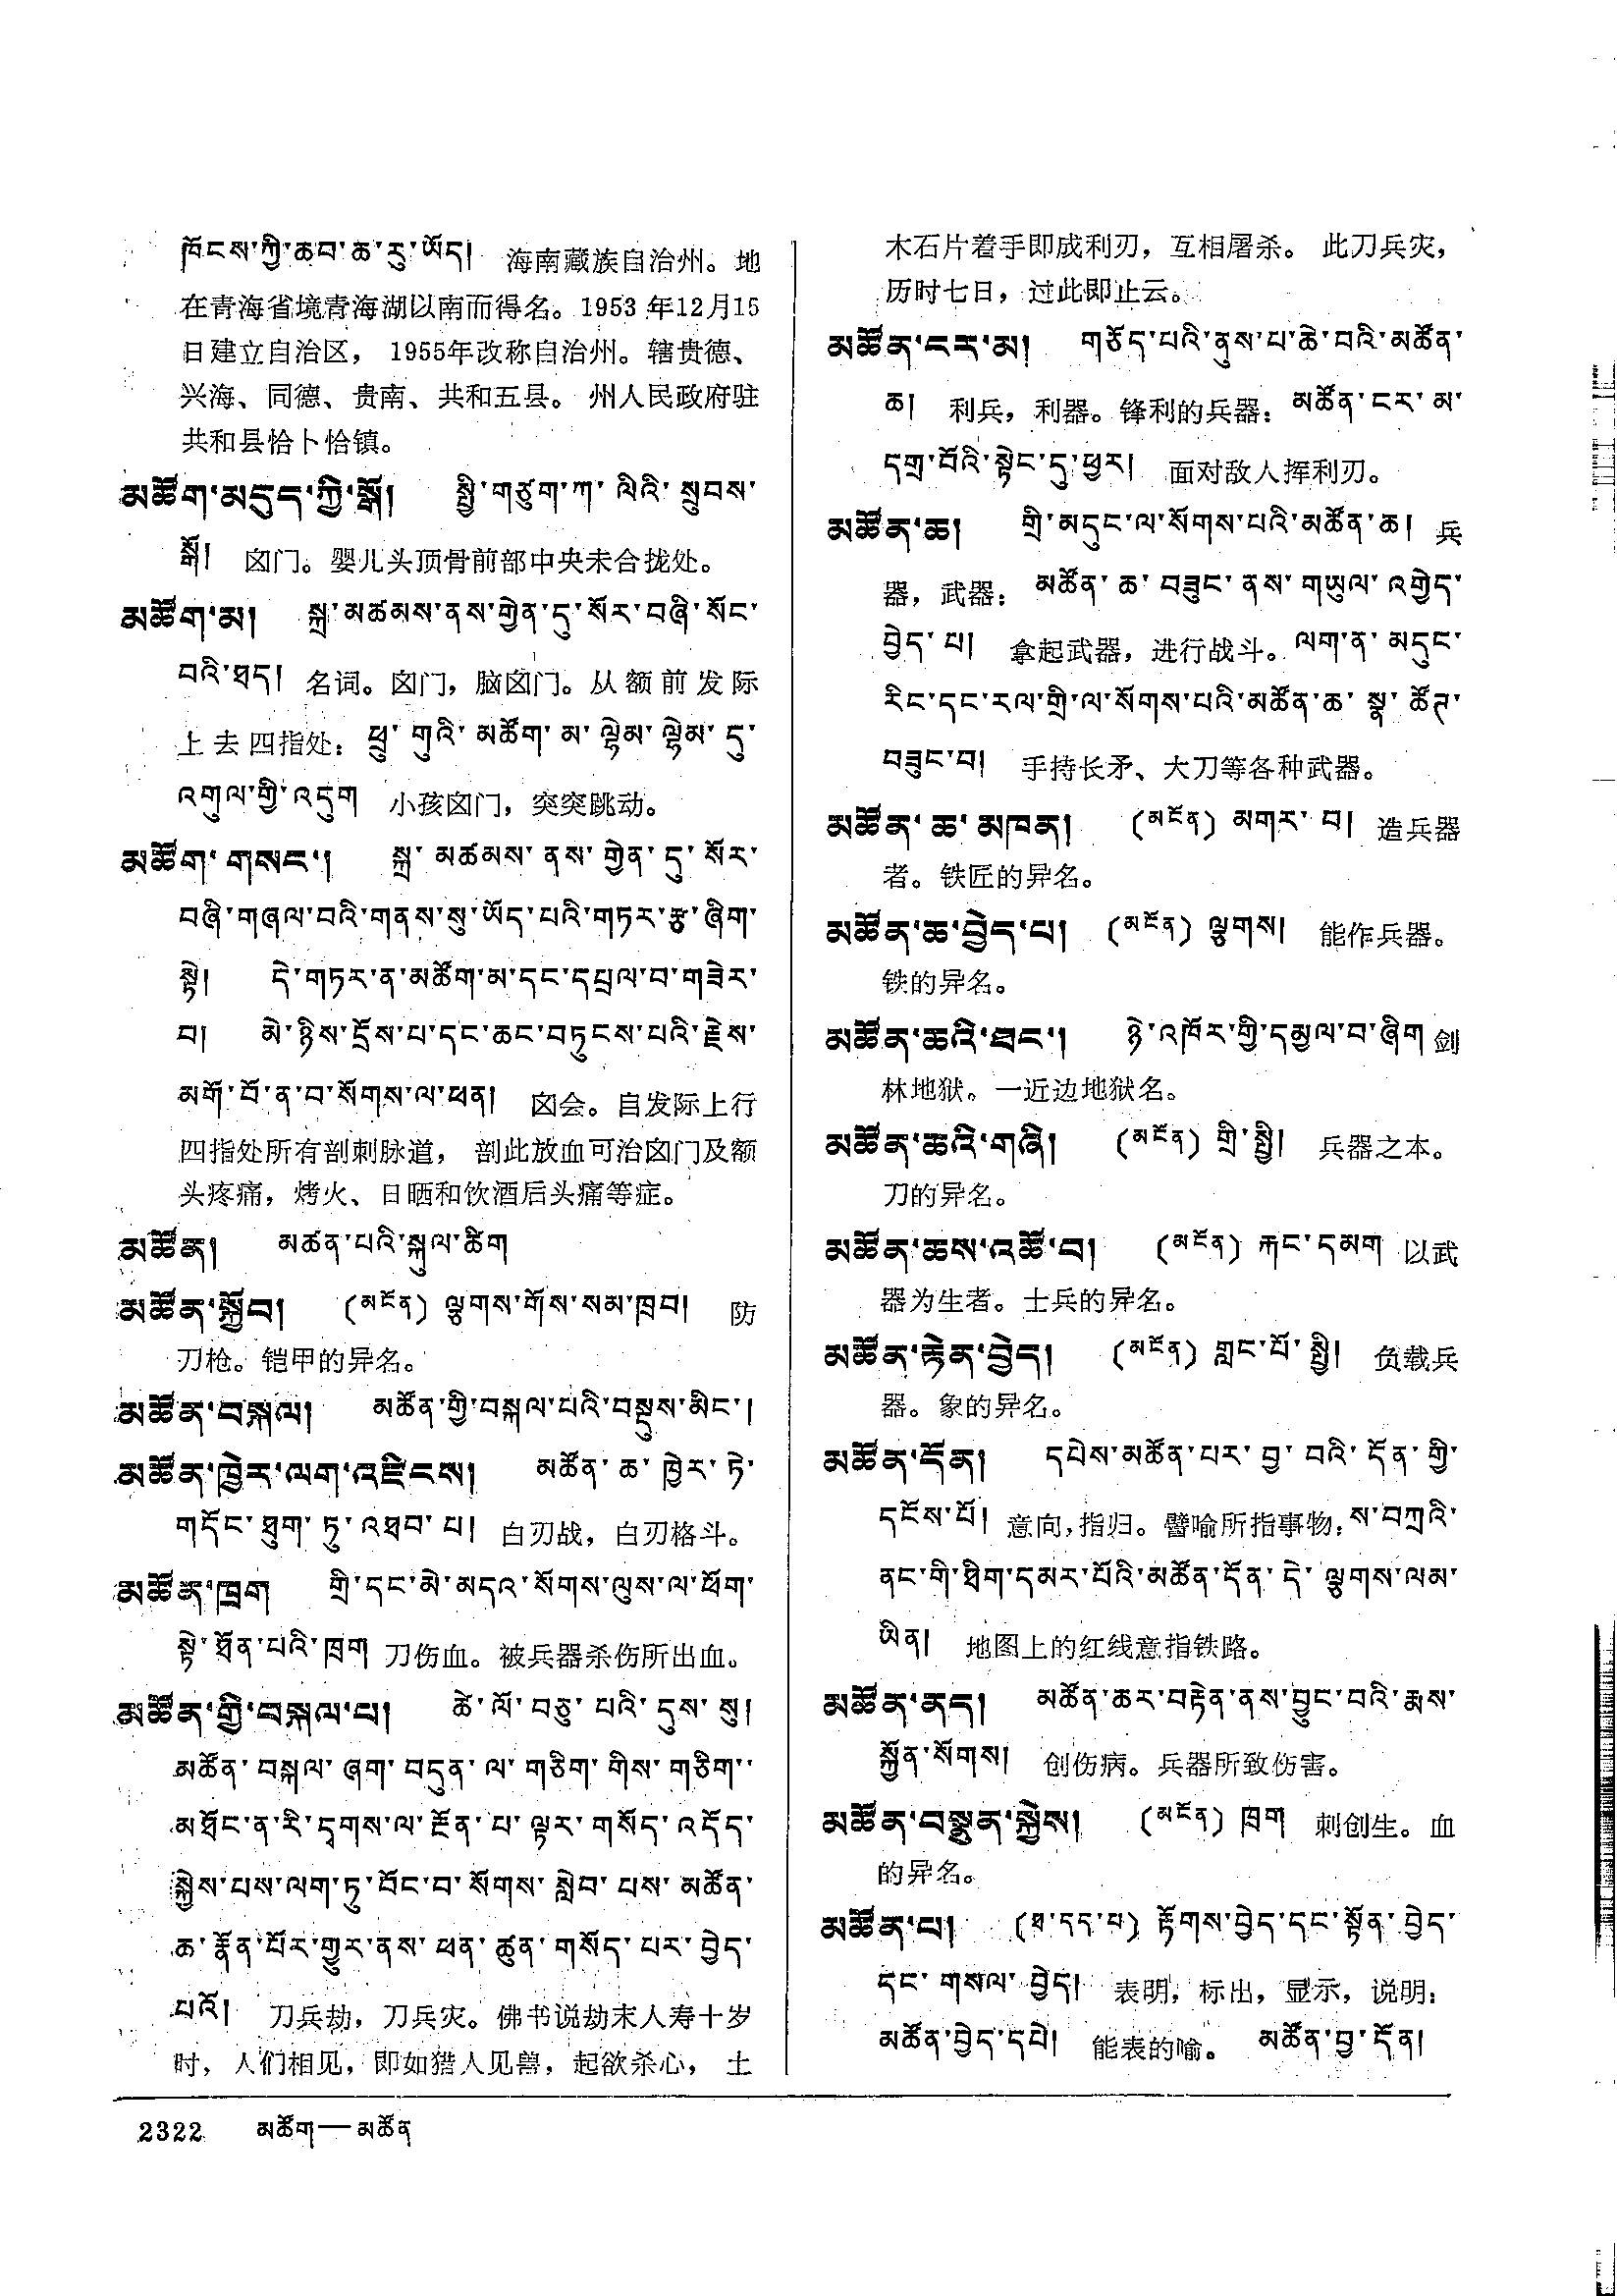 ཁོངས་ཀྱི་ཆབ་ཆ་རུ་ཡོད། 海南藏族自治州。地
在青海省境青海湖以南而得名。1953 年12月15
日建立自治区， 1955年改称自治州。辖贵德、
兴海、同德、贵南、共和五县。 州人民政府驻
共和县恰卜恰镇。
མཚོག་མདུད་ཀྱི་སྒོ། སྤྱི་གཙུག་ཀ་ ལིའི་ སྲུབས་
སྒོ། 囟门。婴儿头顶骨前部中央未合拢处。
མཚོག་མ། སྐྲ་མཚམས་ནས་གྱེན་དུ་སོར་བཞི་སོང་
བའི་ཐད། 名词。囟门，脑囟门。从额前发际
上去四指处： ཕྲུ་ གུའི་ མཚོག་ མ་ ལྷེམ་ ལྷེམ་ དུ་
འགུལ་གྱི་འདུག 小孩囟门，突突跳动。
མཚོག་ གསང་། སྐྲ་ མཚམས་ ནས་ གྱེན་ དུ་ སོར་
བཞི་གཞལ་བའི་གནས་སུ་ཡོད་པའི་གཏར་རྩ་ཞིག་
སྟེ། དེ་གཏར་ན་མཚོག་མ་དང་དཔྲལ་བ་གཟེར་
བ། མེ་ཉིས་དྲོས་པ་དང་ཆང་བཏུངས་པའི་རྗེས་
མགོ་བོ་ན་བ་སོགས་ལ་ཕན། 囟会。自发际上行
四指处所有剖刺脉道， 剖此放血可治囟门及额
头疼痛，烤火、日晒和饮酒后头痛等症。
མཚོན། མཚན་པའི་སྐུལ་ཚིག
མཚོན་སྐྱོབ། (མངོན) ལྕགས་གོས་སམ་ཁྲབ། 防
刀枪。铠甲的异名。
མཚོན་བསྐལ། མཚོན་གྱི་བསྐལ་པའི་བསྡུས་མིང་།
མཚོན་ཁྱེར་ལག་འཛིངས། མཚོན་ ཆ་ ཁྱེར་ ཏེ་
གདོང་ ཐུག་ ཏུ་ འཐབ་ པ། 白刃战，白刃格斗。
མཚོན་ཁྲག གྲི་དང་མེ་མདའ་སོགས་ལུས་ལ་ཕོག་
སྟེ་ཐོན་པའི་ཁྲག 刀伤血。被兵器杀伤所出血。
མཚོན་གྱི་བསྐལ་པ། ཚེ་ ལོ་ བཅུ་ པའི་ དུས་ སུ།
མཚོན་ བསྐལ་ ཞག་ བདུན་ ལ་ གཅིག་ གིས་ གཅིག་
མཐོང་ན་རི་དྭགས་ལ་རྔོན་པ་ལྟར་གསོད་འདོད་
སྐྱེས་པས་ལག་ཏུ་བོང་བ་སོགས་ སླེབ་ པས་ མཚོན་
ཆ་རྣོན་པོར་གྱུར་ནས་ ཕན་ ཚུན་ གསོད་ པར་ བྱེད་
པའོ། 刀兵劫，刀兵灾。佛书说劫末人寿十岁
时，人们相见，即如猎人见兽，起欲杀心， 土
木石片着手即成利刃，互相屠杀。 此刀兵灾，
历时七日，过此即止云。
མཚོན་ངར་མ། གཅོད་པའི་ནུས་པ་ཆེ་བའི་མཚོན་
ཆ། 利兵，利器。锋利的兵器： མཚོན་ངར་མ་
དགྲ་བོའི་སྟེང་དུ་ཕྱར། 面对敌人挥利刃。
མཚོན་ཆ། གྲི་མདུང་ལ་སོགས་པའི་མཚོན་ཆ། 兵
器，武器： མཚོན་ ཆ་ བཟུང་ ནས་ གཡུལ་ འགྱེད་
བྱེད་ པ། 拿起武器，进行战斗。 ལག་ན་ མདུང་
རིང་དང་རལ་གྲི་ལ་སོགས་པའི་མཚོན་ཆ་ སྣ་ ཚོཊ་
བཟུང་བ། 手持长矛、大刀等各种武器。
མཚོན་ ཆ་ མཁན། (མངོན) མགར་ བ། 造兵器
者。铁匠的异名。
མཚོན་ཆ་བྱེད་པ། (མངོན) ལྕགས། 能作兵器。
铁的异名。
མཚོན་ཆའི་ཐང་། ཉེ་འཁོར་གྱི་དམྱལ་བ་ཞིག 剑
林地狱。一近边地狱名。
མཚོན་ཆའི་གཞི། (མངོན) གྲི་སྤྱི། 兵器之本。
刀的异名。
མཚོན་ཆས་འཚོ་བ། (མངོན) རྐང་དམག 以武
器为生者。士兵的异名。
མཚོན་རྟེན་བྱེད། (མངོན) གླང་པོ་སྤྱི། 负载兵
器。象的异名。
མཚོན་དོན། དཔེས་མཚོན་པར་ བྱ་ བའི་ དོན་ གྱི་
དངོས་པོ། 意向，指归。譬喻所指事物： ས་བཀྲའི་
ནང་གི་ཐིག་དམར་པོའི་མཚོན་དོན་ དེ་ ལྕགས་ལམ་
ཡིན། 地图上的红线意指铁路。
མཚོན་ནད། མཚོན་ཆར་བརྟེན་ནས་བྱུང་བའི་རྨས་
སྐྱོན་སོགས། 创伤病。兵器所致伤害。
མཚོན་བསྣུན་སྐྱེས། (མངོན) ཁྲག 刺创生。血
的异名。
མཚོན་པ། (ཐ་དད་པ) རྟོགས་བྱེད་དང་སྟོན་ བྱེད་
དང་ གསལ་ བྱེད། 表明，标出，显示，说明：
མཚོན་བྱེད་དཔེ། 能表的喻。 མཚོན་བྱ་དོན།
2322 མཚོག—མཚོན